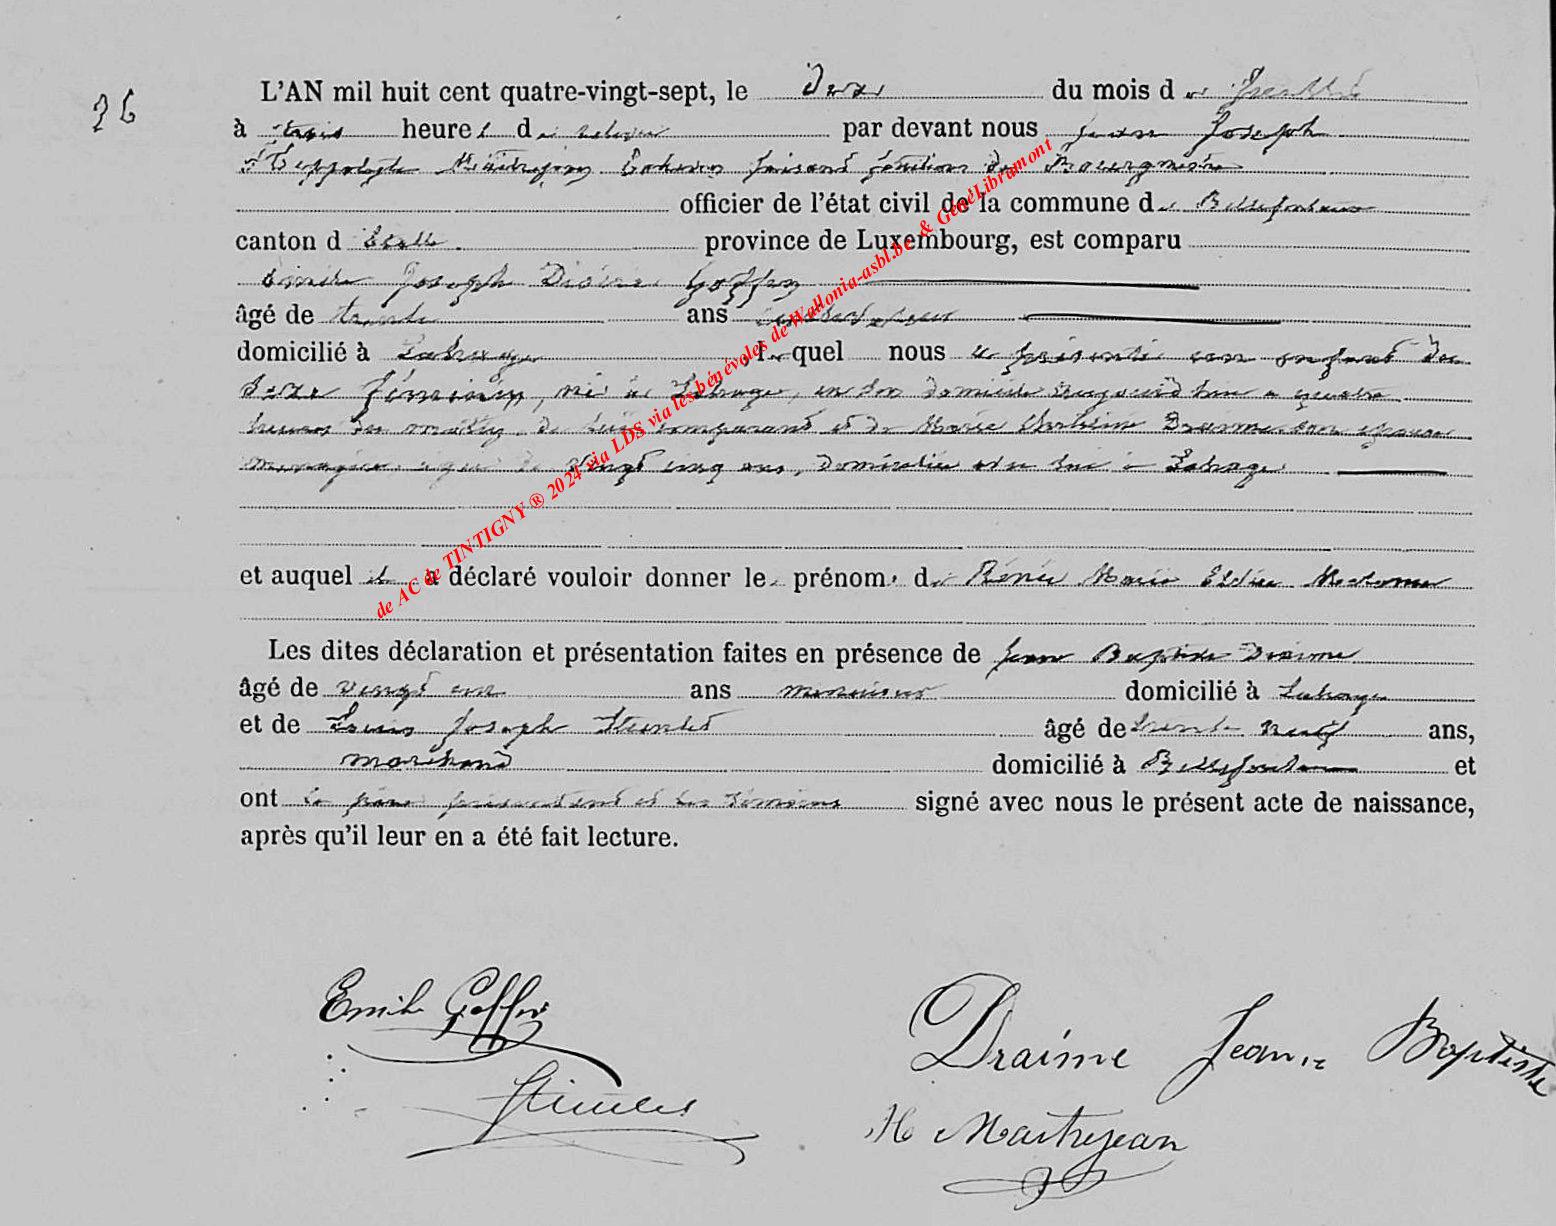 26
L'AN mil huit cent quatre-vingt-sept, le deux du mois de
à trois heures de relevée par devant nous Jean Joseph
Hippolyte Maitrejean Echevin faisant fonctions de Bourgmestre
officier de l'état civil de la commune de Bellefontaine
canton d'Etalle province de Luxembourg, est comparu
Emile Joseph Désiré Goffin
âgé de trente ans
domicilié à Lahage, lequel nous a présenté un enfant du
sexe féminin, né à Lahage, en son domicile aujourd'hui à quatre
heures du matin, de lui comparant et de Marie Draime son épouse
ménagère âgée de vingt cinq ans, domiciliée avec lui à Lahage
et auquel il a déclaré vouloir donner les prénoms de Rénée Marie
Les dites déclaration et présentation faites en présence de Jean Baptiste Draime
âgé de vingt un ans menuisier domicilié à Lahage
et de Louis Joseph âgé de trente neuf ans,
marchand domicilié à Bellefontaine et
ont le père présentant et les témoins signé avec nous le présent acte de naissance,
après qu'il leur en a été fait lecture.
Emile Goffin
Draime Jean Baptiste
H Maitrejean
de AC de TINTIGNY ® 2024 via LDS via les bénévoles de Wallonia-asbl.be & GénéLibramont